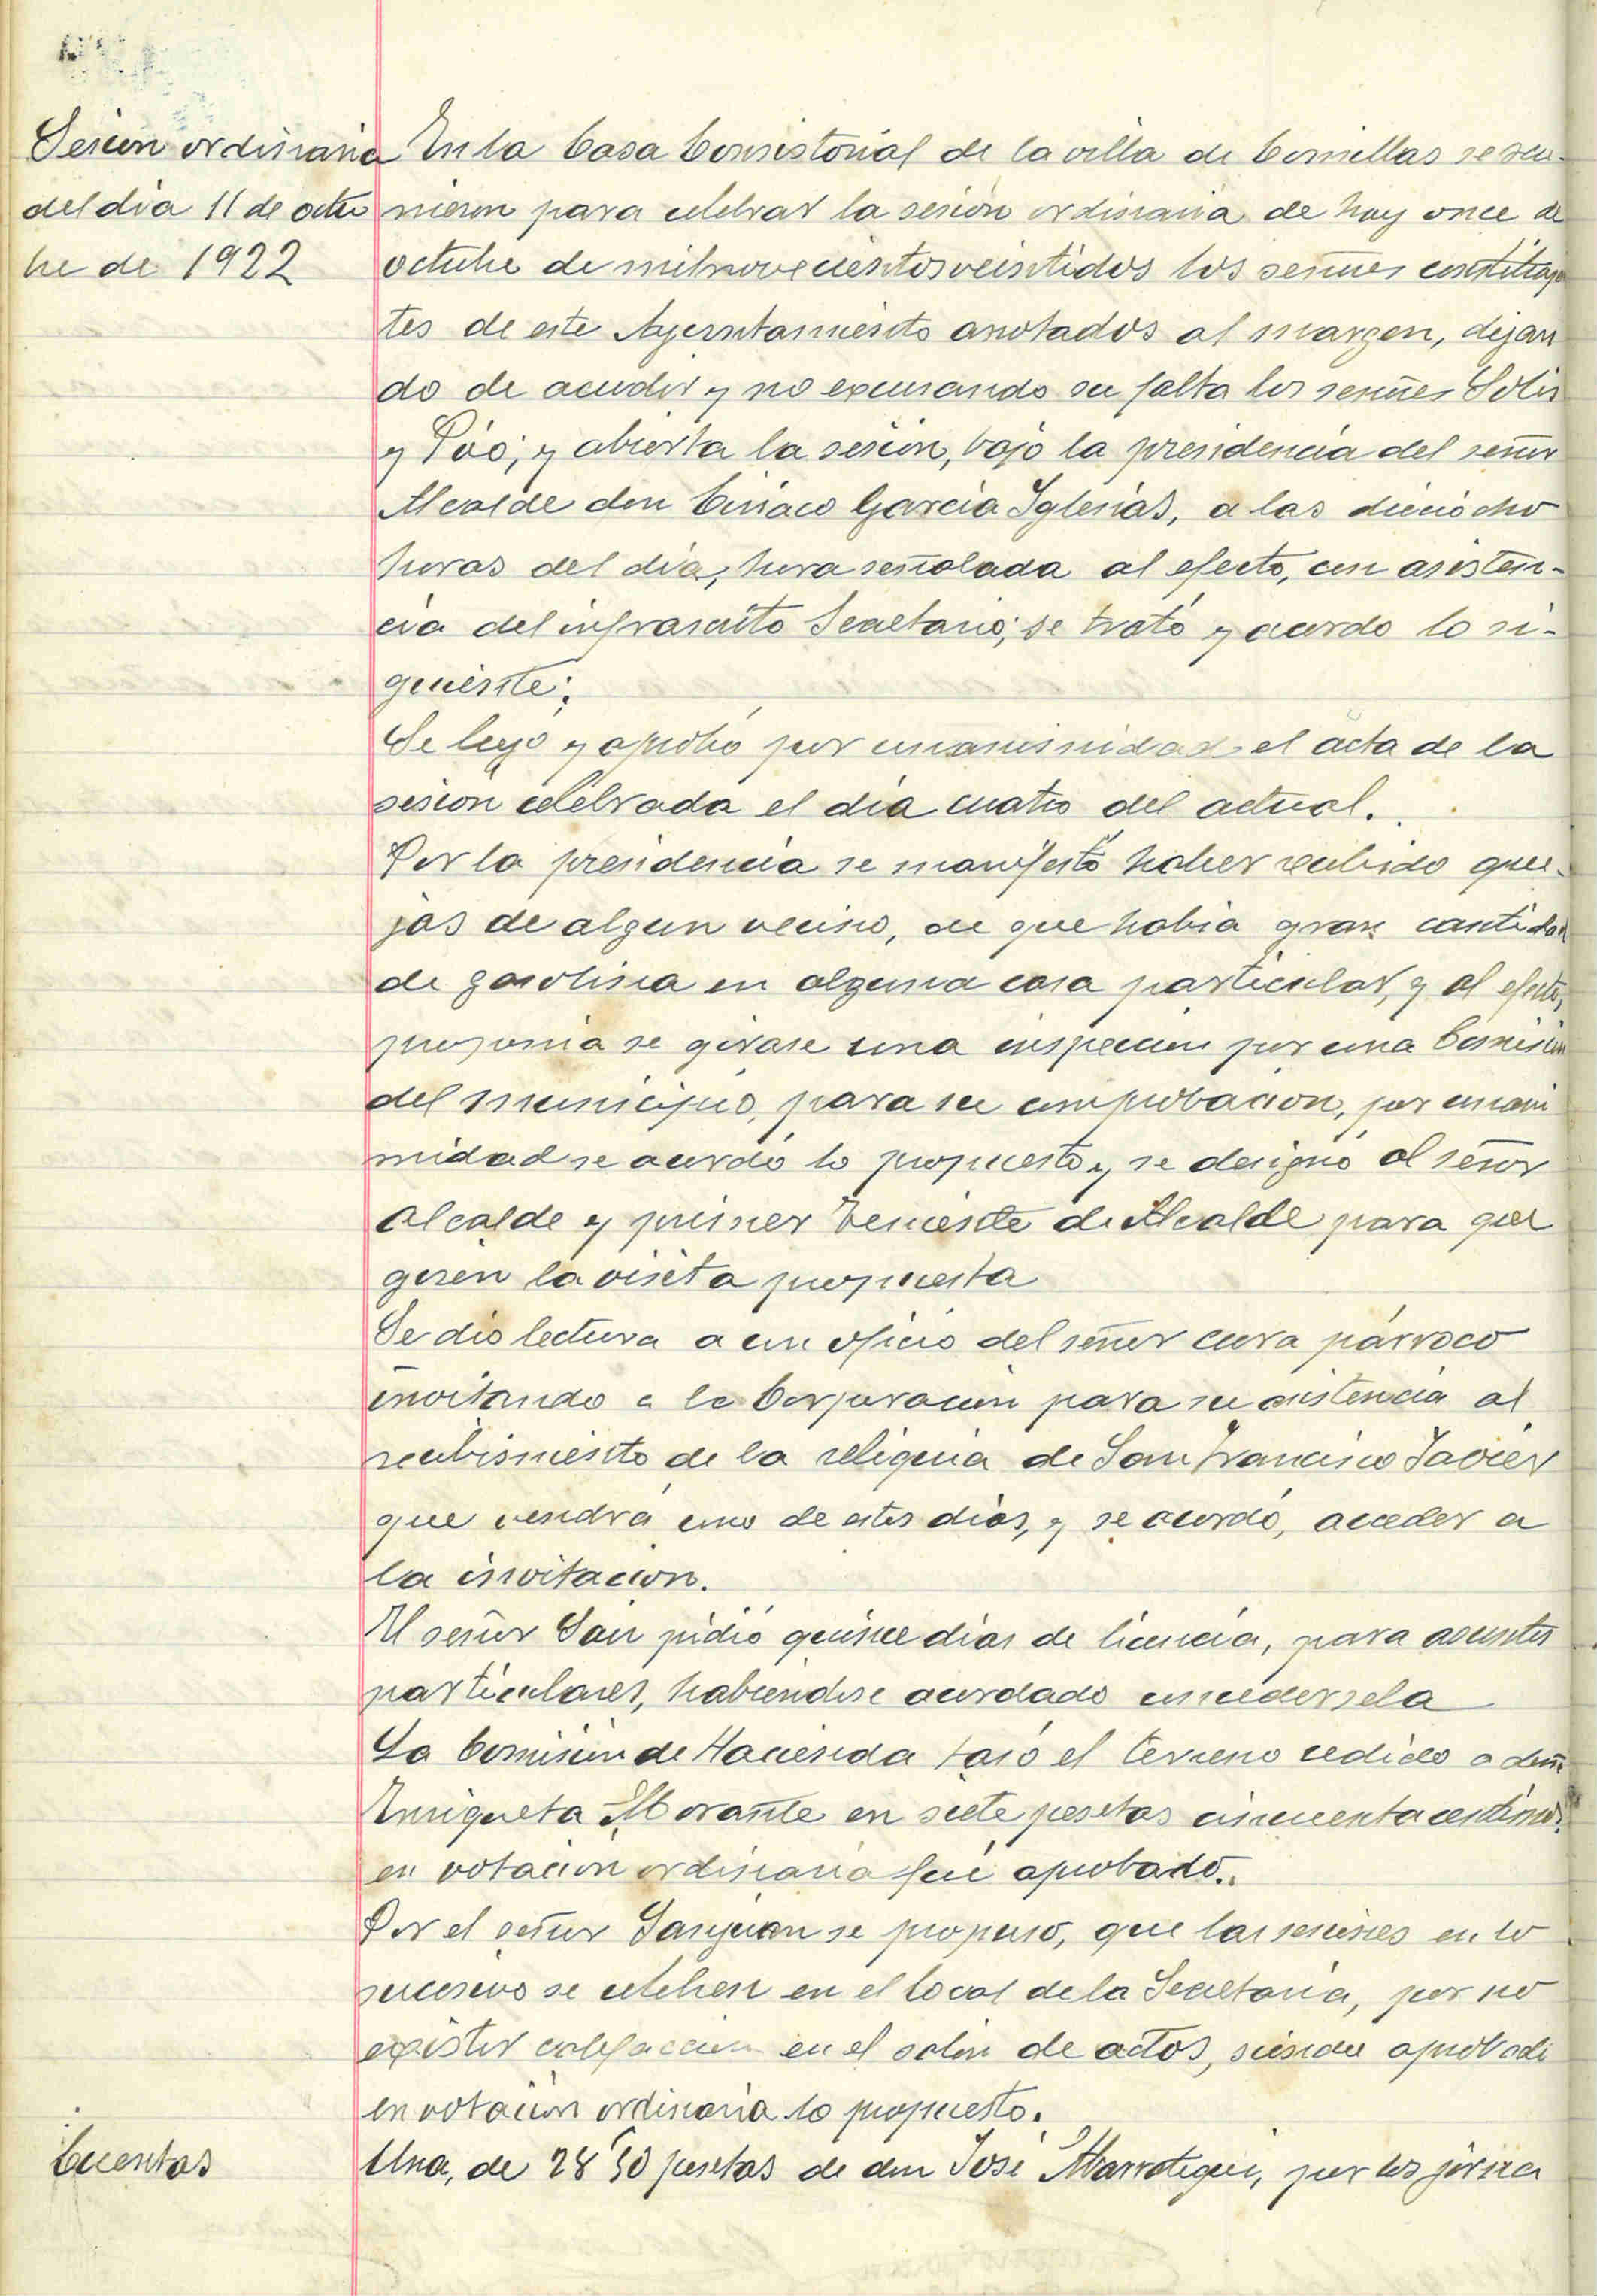 Sesion ordinaria
del dia 11 de octu
bre de 1922
En la Casa Consistorial de la villa de Cornellas se reu-
nieron para celebrar la sesión ordinaria de hoy once de
octubre de milnovecientosveintidos los señores constituyen
tes de este Ayerntamiento anotados al margen, dejan
do de acudir y no excusando su falta los señores Solis
y Pío; y abierta la sesion, bajo la presidencia del señor
Alcalde don Ciriaco Garcia Iglesias, a las dieciocho
horas del dia, hora señalada al efecto, con asisten-
cia del infrascrito Secretario; se trató y acordo lo si-
guiente:
Se leyó y aprobó por unanimidad el acta de la
sesion celebrada el dia cuatro del actual.
Por la presidencia se manifestó haber recibido que-
jas de algun vecino, de que habia gran cantidad
de gasolina en alguna casa particular, y al efecto,
proponia se girase una inspeccion por una Comision
del municipio, para su comprobacion, por unani
midad se acordó lo propuesto y se designó al señor
alcalde y primer teniente de Alcalde para que
giren la visita propuesta
Se dio lectura a un oficio del señor cura párroco
invitando a la Corporacion para su asistencia al
recibimiento de la reliquia de San Francisco Javier
que vendrá uno de estos dias, y se acordó, acceder a
la invitacion.
Al señor San pidió quince dias de licencia, para asuntos
particulares, habiendose acordado concedersela
La Comision de Hacienda tasó el terreno cedido a doña
Enriqueta Morante en siete pesetas cincuenta centimos
en votacion ordinaria fué aprobado.
Por el señor Sanjuan se propuso, que las sesiones en lo
sucesivo se celebren en el local de la Secretaria, por no
existir calefaccion en el salón de actos, siendo aprobado
en votacion ordinaria lo propuesto.
Cuentas
Una, de 28'50 pesetas de don José Marrotegui, por los jorna